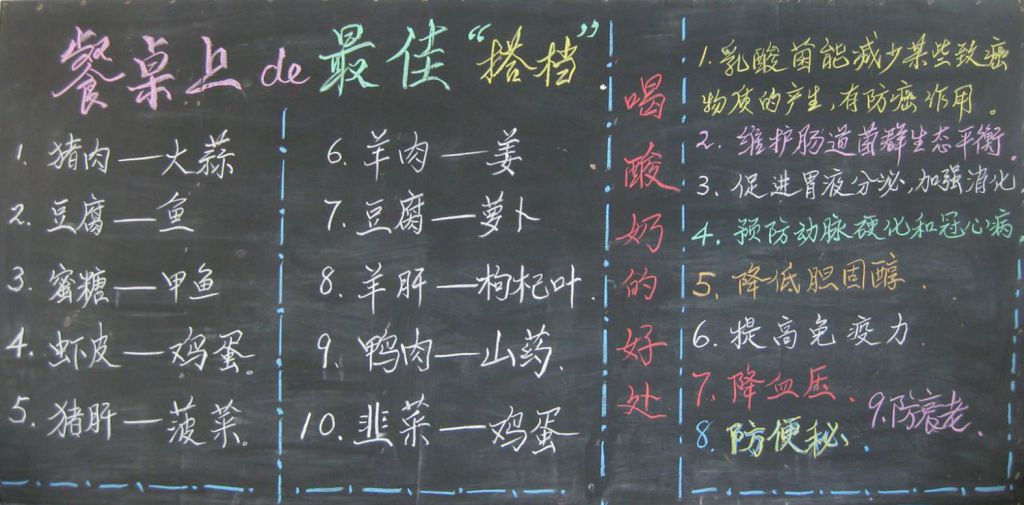 餐桌上de最佳“搭档”
1. 猪肉—大蒜
2. 豆腐—鱼
3. 蜜糖—甲鱼
4. 虾皮—鸡蛋。
5. 猪肝—菠菜.
6. 羊肉—姜
7. 豆腐—萝卜
8. 羊肝—枸杞叶.
9. 鸭肉—山药.
10. 韭菜—鸡蛋
喝酸奶的好处
1. 乳酸菌能减少某些致癌
物质的产生,有防癌作用。
2. 维护肠道菌群生态平衡。
3. 促进胃液分泌,加强消化.
4. 预防动脉硬化和冠心病.
5. 降低胆固醇.
6. 提高免疫力.
7. 降血压.
8. 防便秘.
9. 防衰老.